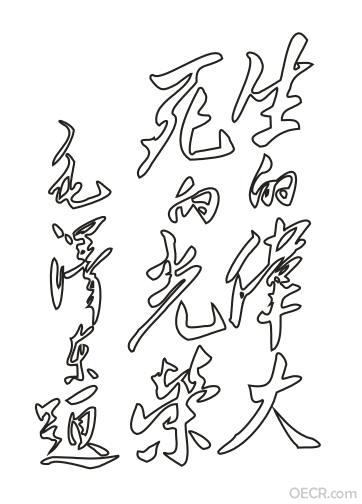 生的偉大
死的光榮
毛澤东题
OECR.com